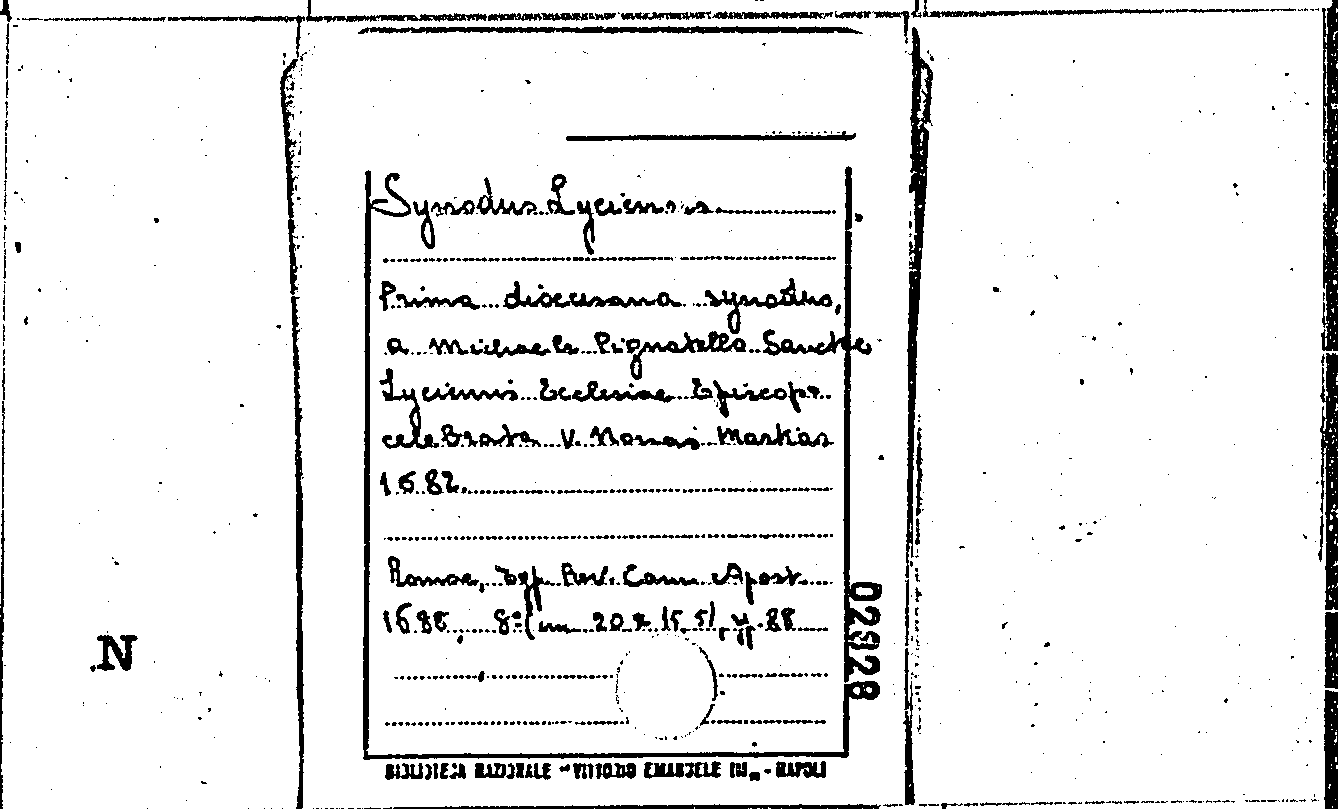 Synodus Lyciensis.
Prima diocesana synodus,
a Michaele Pignatello Sanctae
Lyciensis Ecclesiae Episcopo
celebrata V. Nonas Martias
1682.
Romae, Typ. Rev. Cam. Apost.
8° (cm 20 x 15,5), pp. 88
02928
N
BIBLIOTECA NAZIONALE "VITTORIO EMANUELE III" - NAPOLI